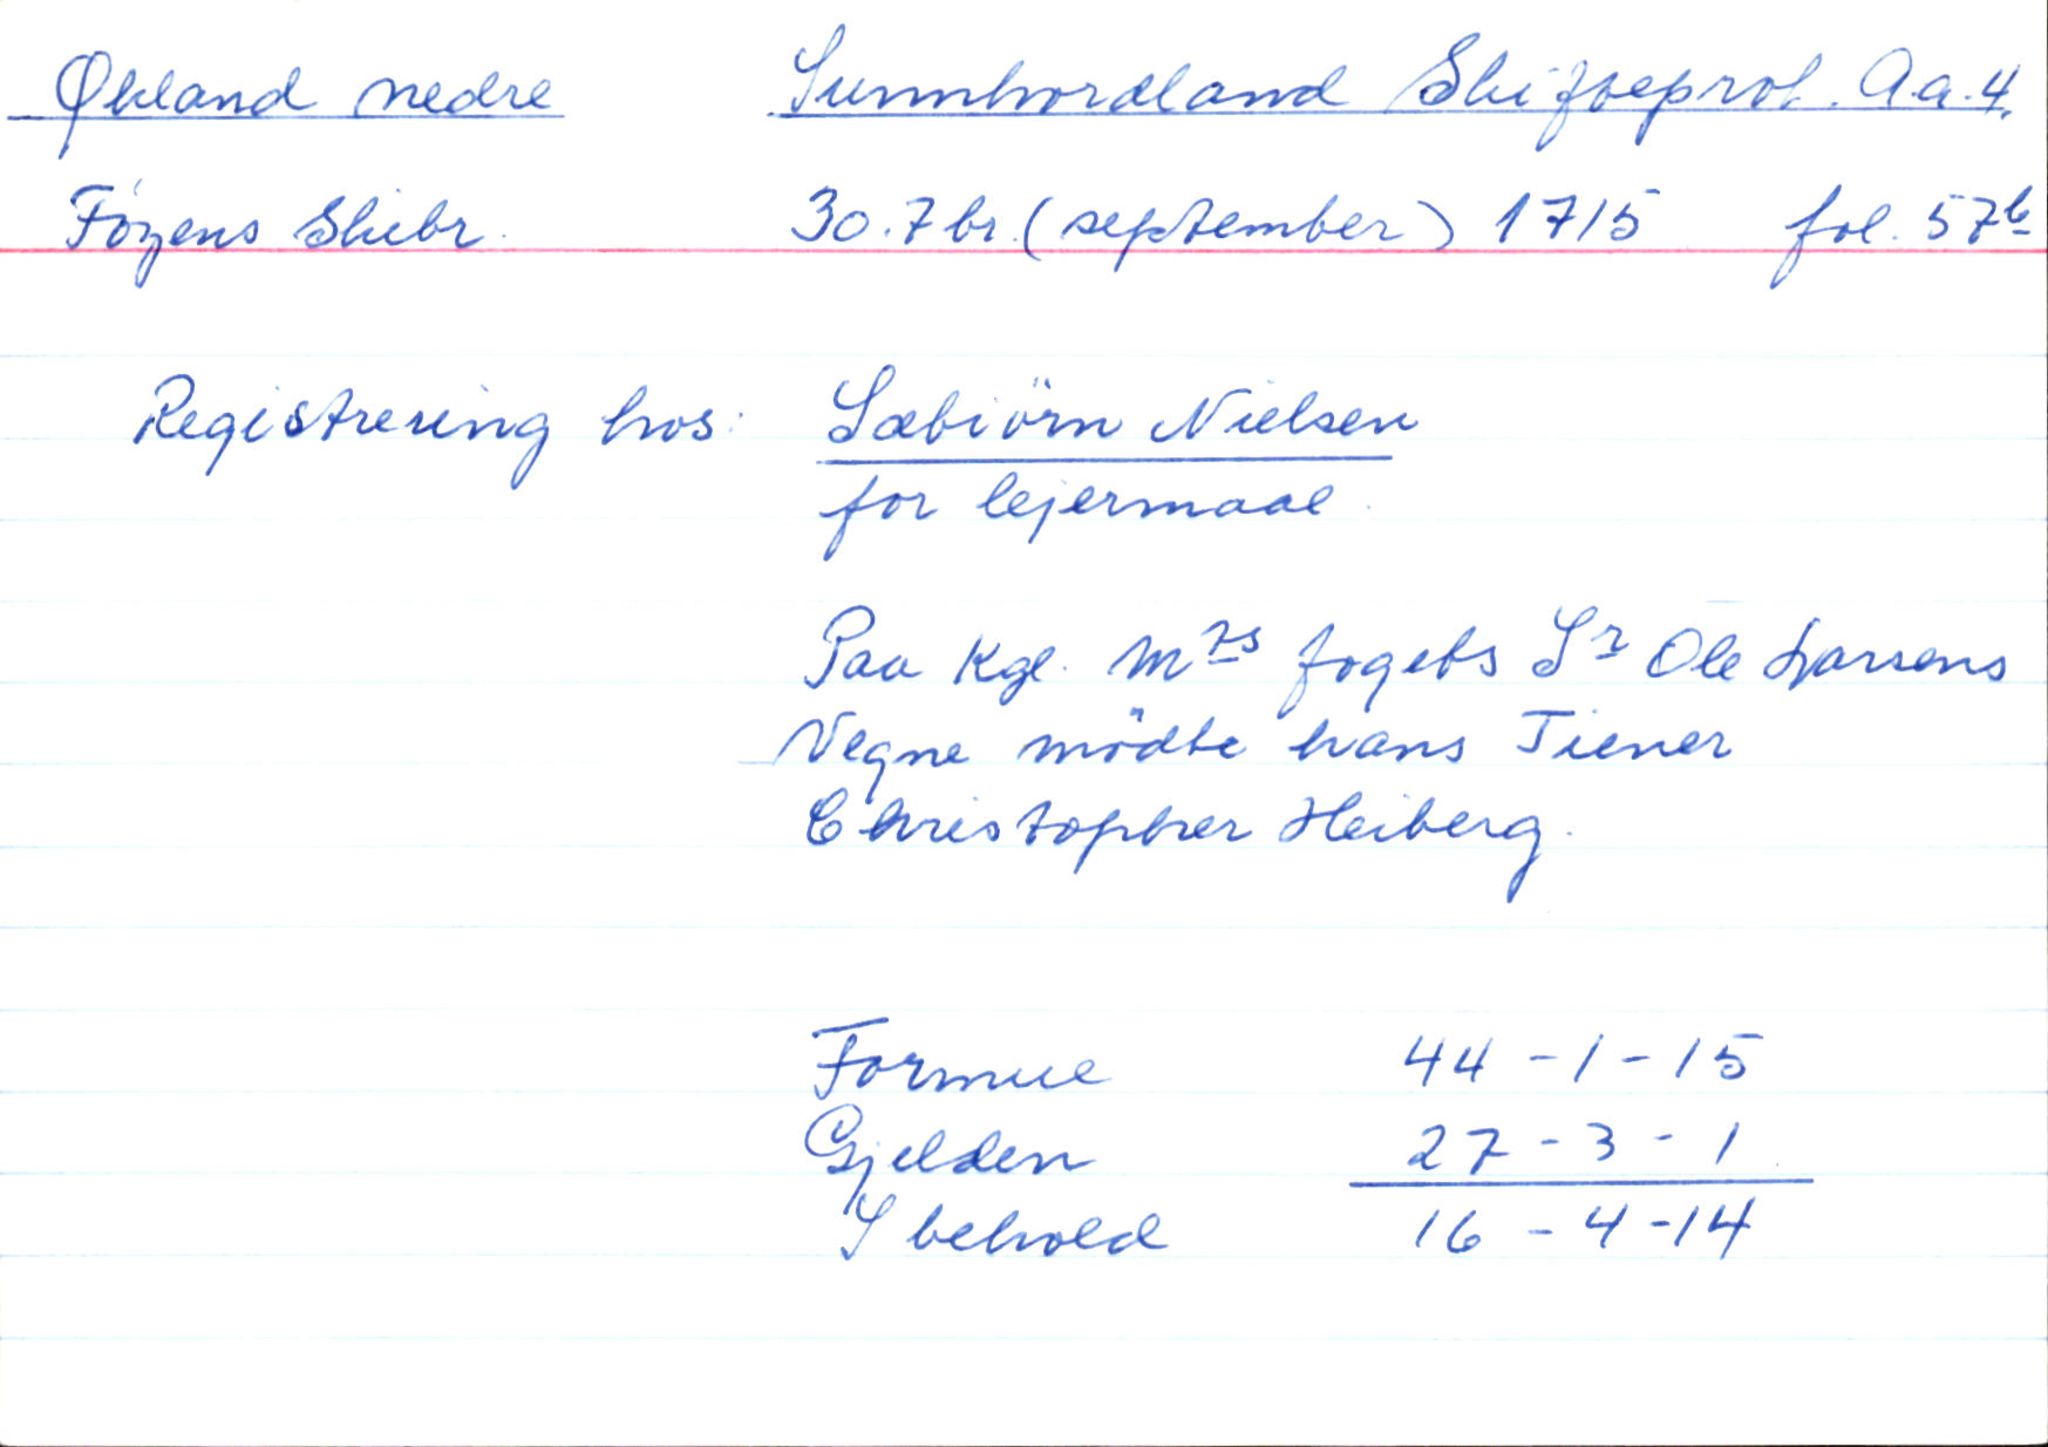 Økland nedre Sunnhordland Skifteprot. A.a.4.
Föyens Skibr. 30.7br. (september) 1715 fol. 57b
Registrering hos: Sæbiörn Nielsen
for lejermaal.
Paa Kgl. Mts fogets Sr Ole Larsens
Vegne mödte hans Tiener
Christopher Heiberg.
Formue 44 - 1 - 15
Gjelden 27 - 3 - 1
I behold 16 - 4 - 14